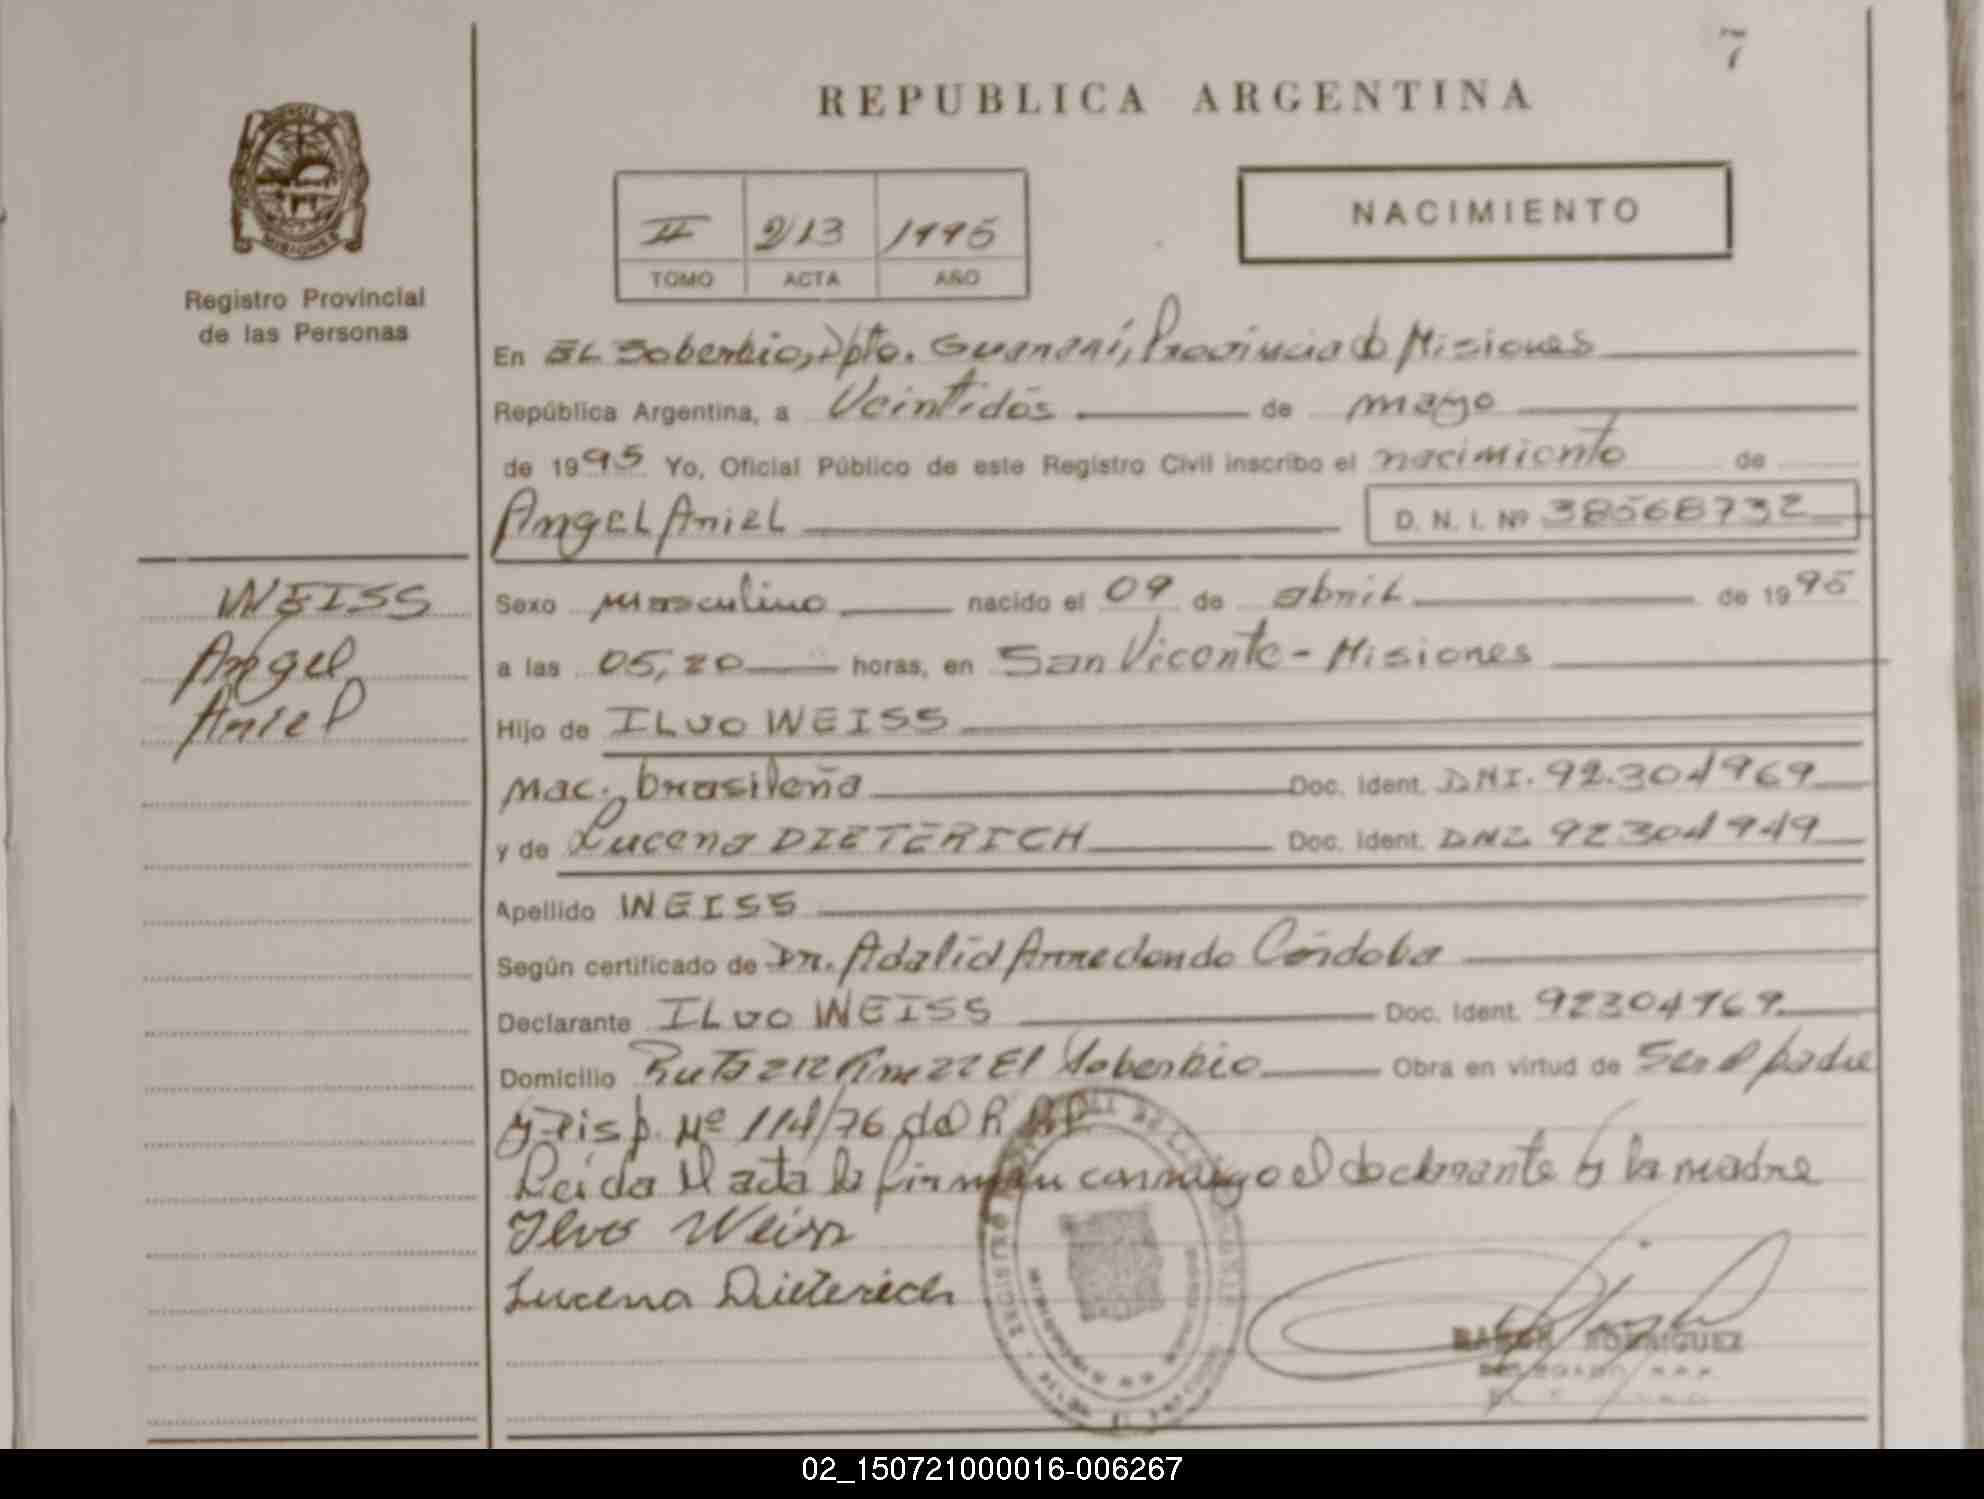 7
REPUBLICA ARGENTINA
MISIONES
Registro Provincial
de las Personas
II 213 1995
TOMO ACTA AÑO
NACIMIENTO
En EL Soberbio, Dpto. Guaraní, Provincia de Misiones
República Argentina, a Veintidós de mayo
de 1995 Yo, Oficial Público de este Registro Civil inscribo el nacimiento de
Angel Ariel D. N. I. Nº 38568732
WEISS
Angel
Ariel
Sexo masculino nacido el 09 de abril de 1995
a las 05,20 horas, en San Vicente - Misiones
Hijo de ILVO WEISS
nac. brasileña Doc. Ident. DNI. 92.304969
y de Lucena DIETERICH Doc. Ident. DNI 92304949
Apellido WEISS
Según certificado de Dr. Adalid Arredondo Córdoba
Declarante ILVO WEISS Doc. Ident. 92304969
Domicilio Ruta 212 El Soberbio Obra en virtud de Ser el padre
y Disp. Nº 114/76 del R.P.P.
Leída el acta la firman conmigo el declarante y la madre
Ilvo Weiss
Lucena Dieterich
RAMON RODRIGUEZ
02_150721000016-006267